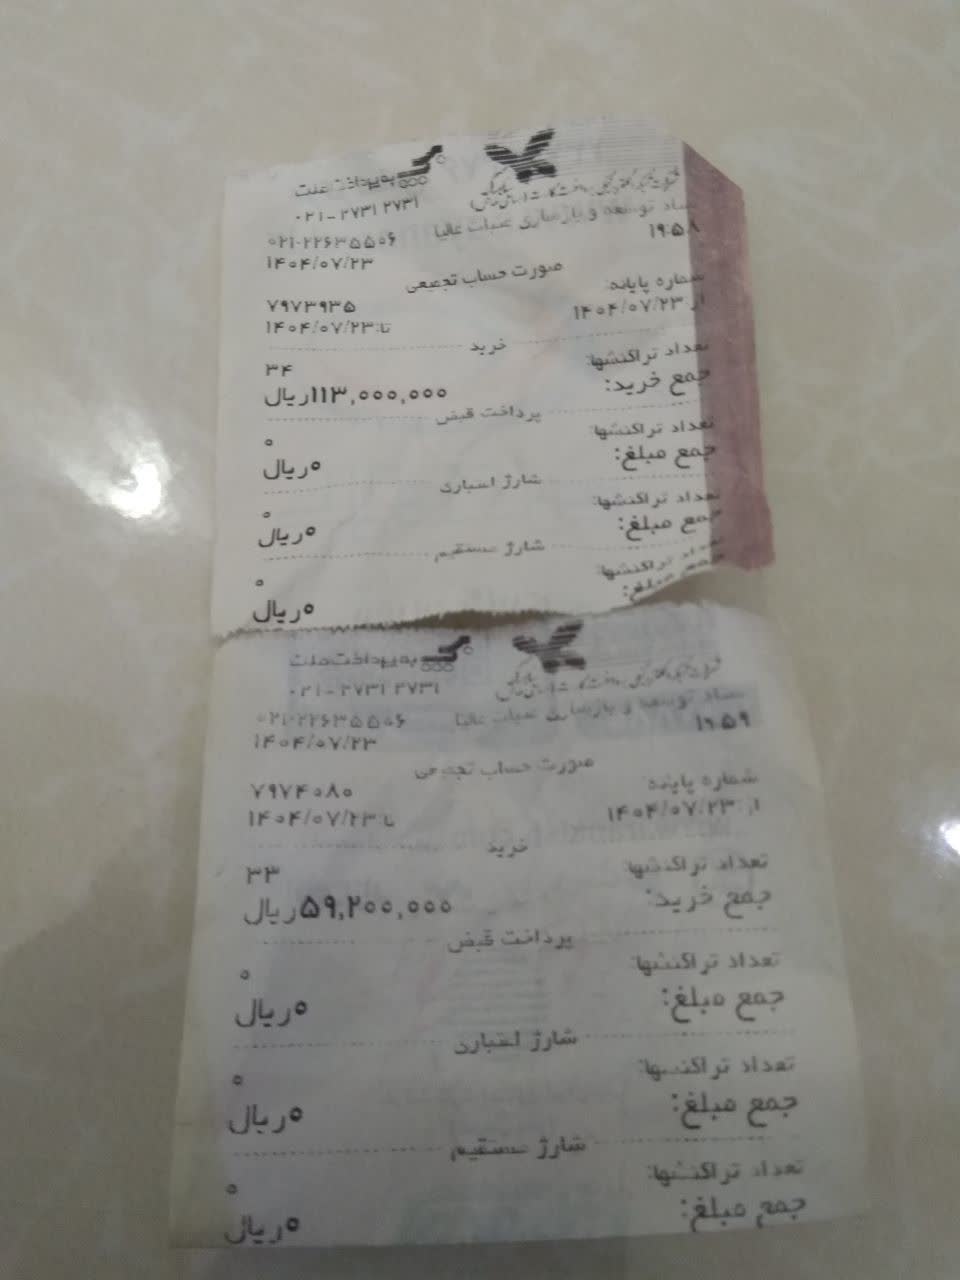 به پرداخت ملت
۰۲۱-۲۷۳۱۲۷۳۱
ستاد توسعه و بازسازی عتبات عالیا
۰۲۱-۲۲۶۳۵۵۰۶
۱۹:۵۸ ۱۴۰۴/۰۷/۲۳
صورت حساب تجمیعی
شماره پایانه: ۷۹۷۳۹۳۵
از: ۱۴۰۴/۰۷/۲۳ تا: ۱۴۰۴/۰۷/۲۳
خرید
تعداد تراکنشها: ۳۴
جمع خرید: ۱۱۳,۰۰۰,۰۰۰ریال
پرداخت قبض
تعداد تراکنشها: ۰
جمع مبلغ: ۰ریال
شارژ اعتباری
تعداد تراکنشها: ۰
جمع مبلغ: ۰ریال
شارژ مستقیم
تعداد تراکنشها: ۰
جمع مبلغ: ۰ریال
به پرداخت ملت
۰۲۱-۲۷۳۱۲۷۳۱
ستاد توسعه و بازسازی عتبات عالیا
۰۲۱-۲۲۶۳۵۵۰۶
۱۹:۵۹ ۱۴۰۴/۰۷/۲۳
صورت حساب تجمیعی
شماره پایانه: ۷۹۷۴۰۸۰
از: ۱۴۰۴/۰۷/۲۳ تا: ۱۴۰۴/۰۷/۲۳
خرید
تعداد تراکنشها: ۳۳
جمع خرید: ۵۹,۲۰۰,۰۰۰ریال
پرداخت قبض
تعداد تراکنشها: ۰
جمع مبلغ: ۰ریال
شارژ اعتباری
تعداد تراکنشها: ۰
جمع مبلغ: ۰ریال
شارژ مستقیم
تعداد تراکنشها: ۰
جمع مبلغ: ۰ریال